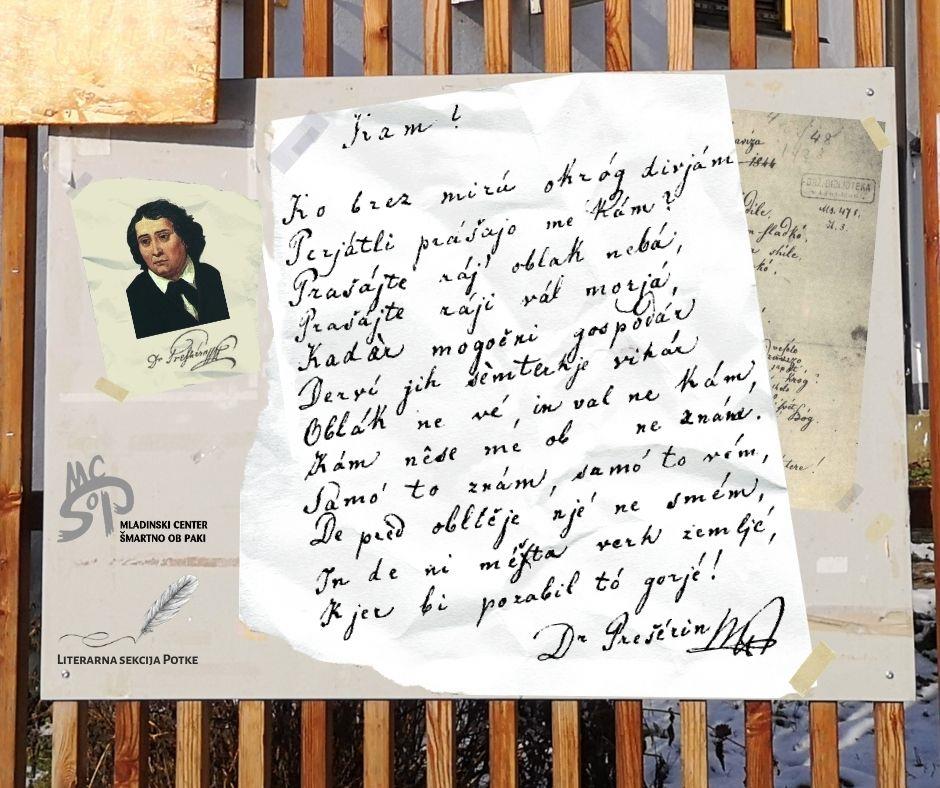 Kam?
Ko brez mirú okróg divjám
Perjátli prášajo me Kám?
Prašájte ráj' oblak nebá,
Prašájte ráji vál morjá,
Kadàr mogočni gospodár
Derví jih sèmterkje vihár
Oblák ne vé in val ne kám,
Kám nêse mé ob ne znám.
Samó to znám, samó to vém,
De prèd obltèje njé ne smém,
In de ni mésta verh zemljé,
Kjer bi pozabil tó gorjé!
Dr Prešérin
Dr Prešérin
MC
ŠOP
MLADINSKI CENTER
ŠMARTNO OB PAKI
LITERARNA SEKCIJA POTKE
48
1844
DRŽ. BIBLIOTEKA
Ms. 471,